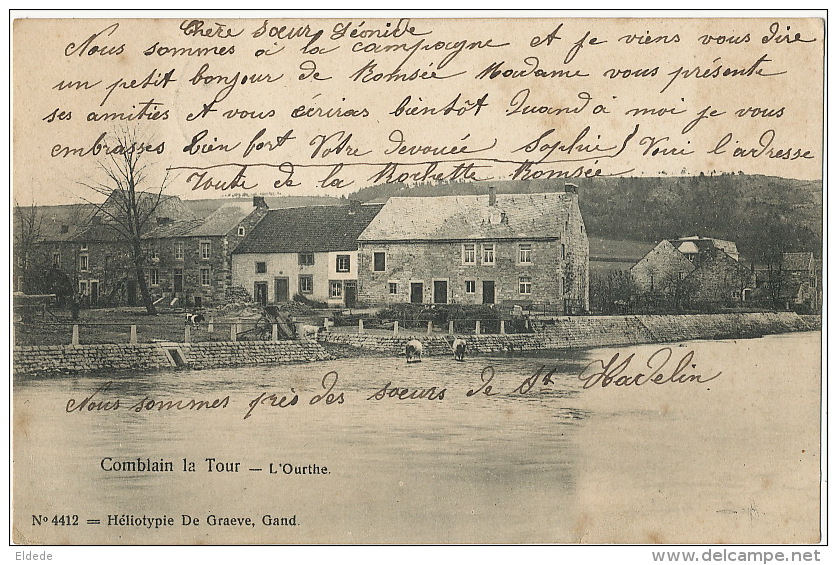 Chère Sœur Léonide
Nous sommes à la campagne et je viens vous dire
un petit bonjour de Romsée Madame vous présente
ses amitiés et vous écriras bientôt Quand à moi je vous
embrasses bien fort Votre devouée Sophie Voici l'adresse
Route de la Rochette Romsée
Nous sommes près des sœurs de St Hadelin
Comblain la Tour — L'Ourthe.
No 4412 = Héliotypie De Graeve, Gand.
Eldede
http://www.delcampe.net